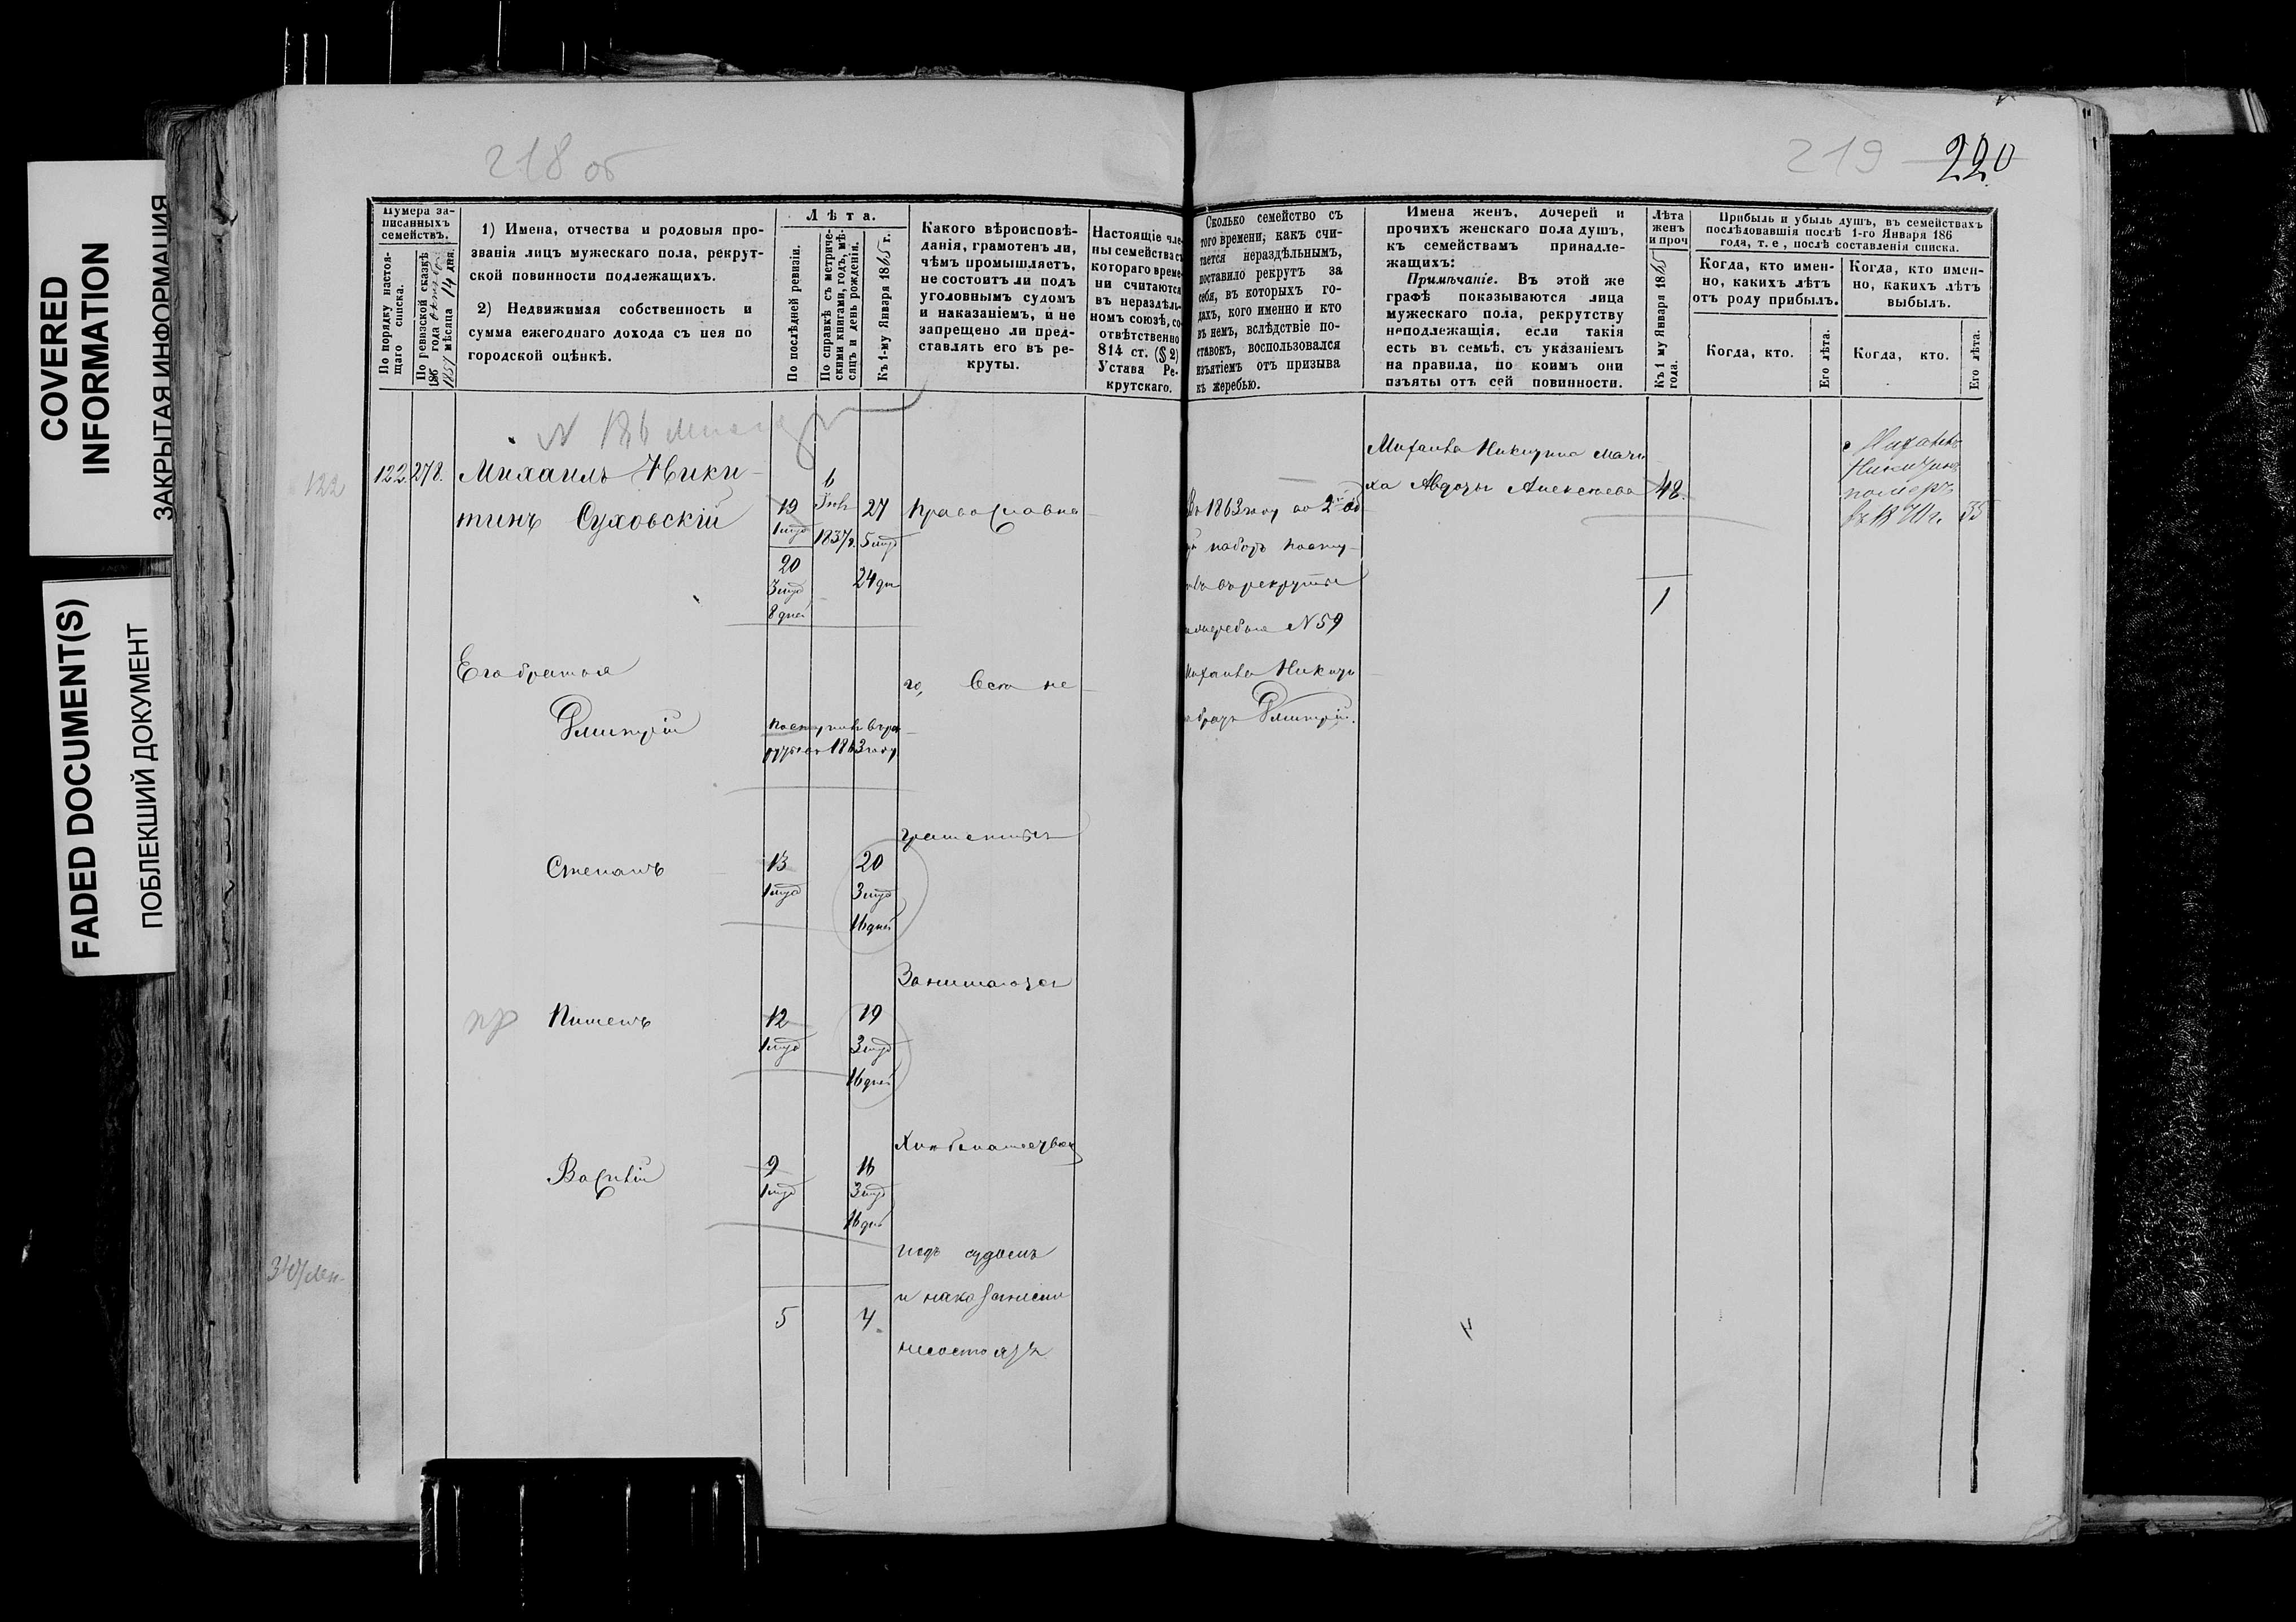 COVERED
INFORMATION
ЗАКРЫТАЯ ИНФОРМАЦИЯ
FADED DOCUMENT(S)
ПОБЛЕКШИЙ ДОКУМЕНТ
218 об
Нумера за-
писанныхъ
семействъ.
По порядку настоя-
щаго списка.
По ревизской сказкѣ
186 года
1857 мѣсяца 14 дня.
1) Имена, отчества и родовыя про-
званія лицъ мужескаго пола, рекрут-
ской повинности подлежащихъ.
2) Недвижимая собственность и
сумма ежегоднаго дохода съ нея по
городской оцѣнкѣ.
Лѣта.
По послѣдней ревизіи.
По справкѣ съ метриче-
скими книгами, годъ, мѣ-
сяцъ и день рожденія.
Къ 1-му Января 1865 г.
Какого вѣроисповѣ-
данія, грамотенъ ли,
чѣмъ промышляетъ,
не состоитъ ли подъ
уголовнымъ судомъ
и наказаніемъ, и не
запрещено ли пред-
ставлять его въ ре-
круты.
Настоящіе чле-
ны семейства съ
котораго време-
ни считаются
въ нераздѣль-
номъ союзѣ, со-
отвѣтственно
814 ст. (§ 2)
Устава Ре-
крутскаго.
N 186
122
122. 278.
Михаилъ Ники-
тинъ Суховскій
19
1 мцъ
20
3 мцъ
8 дней
6
1837 г.
27
5 мцъ
24 дн
Православна-
Его братья
го, Всѣ не-
Дмитрій
поступилъ въ рек-
руты въ 1863 году
грамотны
Степанъ
13
1 мцъ
20
3 мцъ
16 дней
Занимаются
пр Пименъ
12
1 мцъ
19
3 мцъ
16 дней
Хлѣбопашествомъ
Василій
9
1 мцъ
16
3 мцъ
16 дн
подъ судомъ
и наказаніемъ
несостоятъ
5
4.
219 220
Сколько семейство съ
того времени, какъ счи-
тается нераздѣльнымъ,
поставило рекрутъ за
себя, въ которыхъ го-
дахъ, кого именно и кто
въ немъ, вслѣдствіе по-
ставокъ, воспользовался
изъятіемъ отъ призыва
къ жеребью.
Имена женъ, дочерей и
прочихъ женскаго пола душъ,
къ семействамъ принадле-
жащихъ:
Примѣчаніе. Въ этой же
графѣ показываются лица
мужескаго пола, рекрутству
неподлежащія, если такія
есть въ семьѣ, съ указаніемъ
на правила, по коимъ они
изъяты отъ сей повинности.
Лѣта
женъ
и проч
Къ 1 му Января 1865
года.
Прибыль и убыль душъ, въ семействахъ
послѣдовавшія послѣ 1-го Января 186
года, т. е , послѣ составленія списка.
Когда, кто имен-
но, какихъ лѣтъ
отъ роду прибылъ.
Когда, кто имен-
но, какихъ лѣтъ
выбылъ.
Когда, кто.
Его лѣта.
Когда, кто.
Его лѣта.
Въ 1863 году во 2
наборъ посту-
въ рекруты
N 59
Михаила Никити-
братъ Дмитрій.
Михаила Никитина маче-
ха Авдотья Алексѣева
48.
1
Михаилъ
Никитинъ
померъ
въ 1870 г. 33